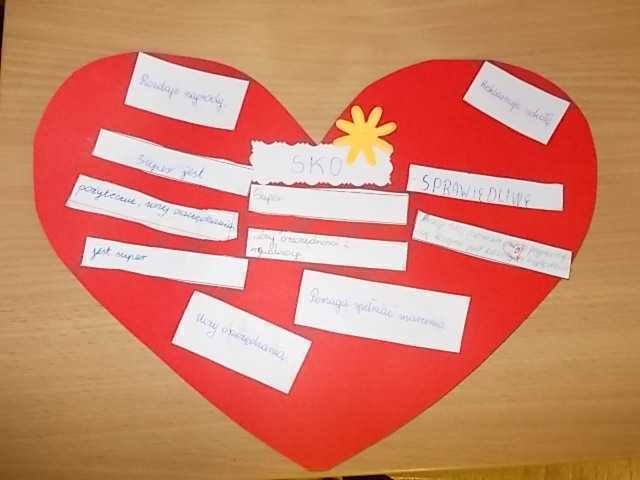 Rozdaje nagrody.
Reklamuje szkołę
SKO
Super jest
SPRAWIEDLIWE
pożyteczne, uczy oszczędzania,
Super
uczy oszczędności i
jest super
Pomaga spełniać marzenia
Uczy oszczędzania